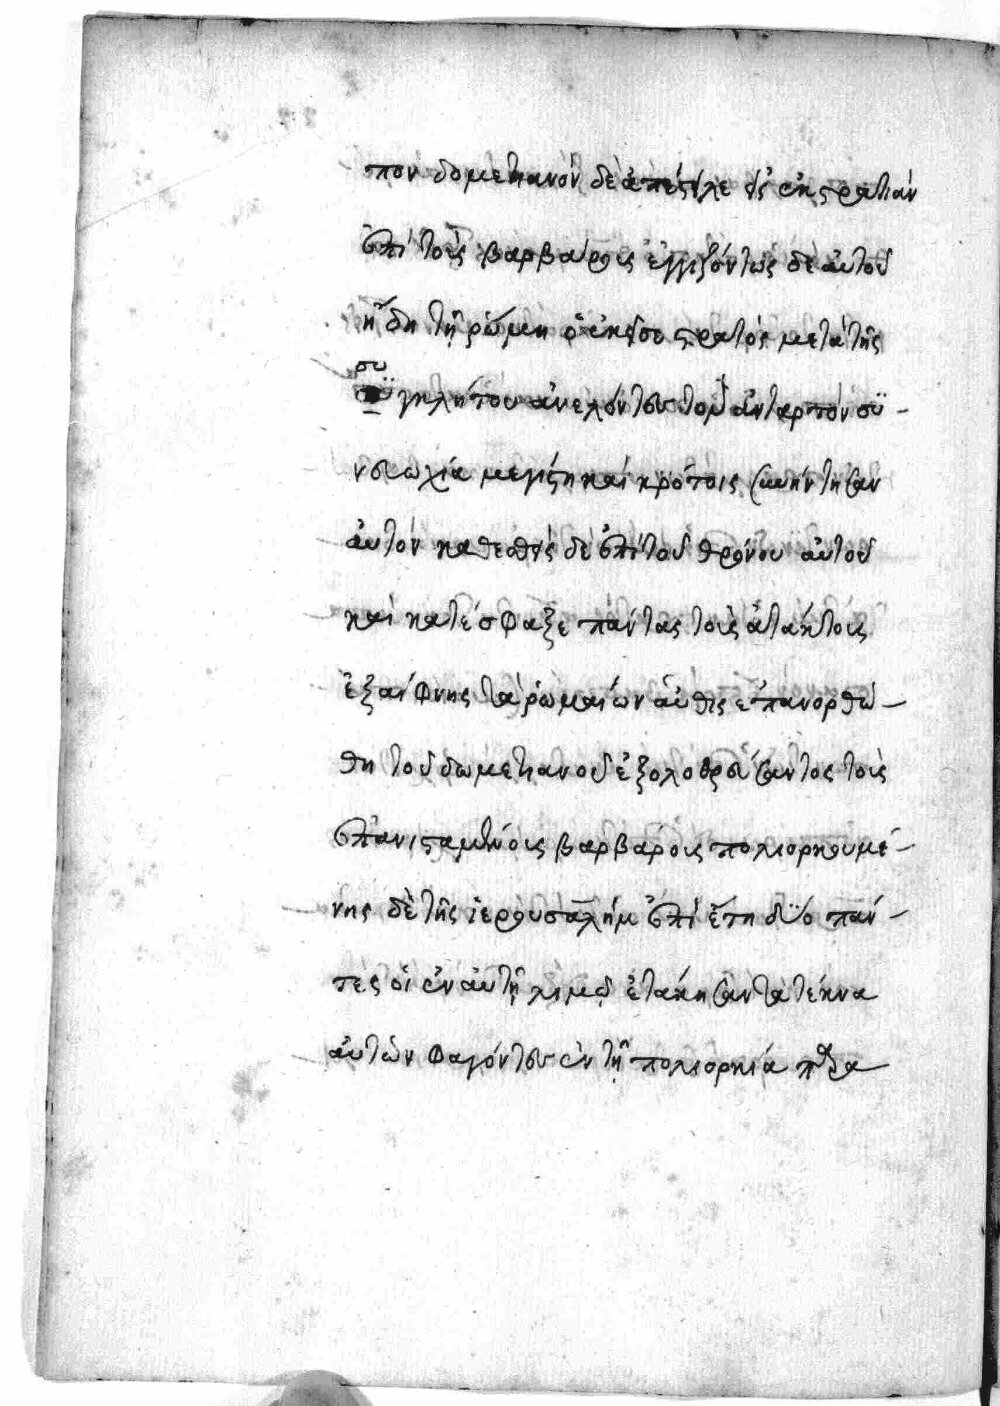 πον δομετιανὸν δὲ ἀπέστιλε εἰς ἐκστρατιὰν
ἐπὶ τοὺς βαρβάρους ἐγγίζόντως δὲ ἀυτοῦ
ἤδη τῆ ρώμη ὁ ἐκεῖσε στρατὸς μετὰ τῆς
συγκλήτου ἀνελόντες τὸν ἀντάρτον σὺ-
ν εὐωχία μεγίστη καὶ κρότοις ὑπήντησαν
ἀυτὸν καθεσθεὶς δὲ ἐπὶ τοῦ θρόνου ἀυτοῦ
καὶ κατέσφαξε πάντας τοὺς ἀτάκτους
ἐξαίφνης τὰ ρωμαίων ἄυθις ἐπανορθώ-
θη τοῦ δωμετιανοῦ ἐξολοθρεύσαντος τοὺς
ἐπανισταμένους βαρβάρους πολιορκουμέ-
νης δὲ τῆς ἱερουσαλὴμ ἐπὶ ἔτη δύο πάν-
τες οἱ ἐν ἀυτῆ λιμῶ ἐτάκησαν τὰ τέκνα
ἀυτῶν φαγόντες ἐν τῆ πολιορκία